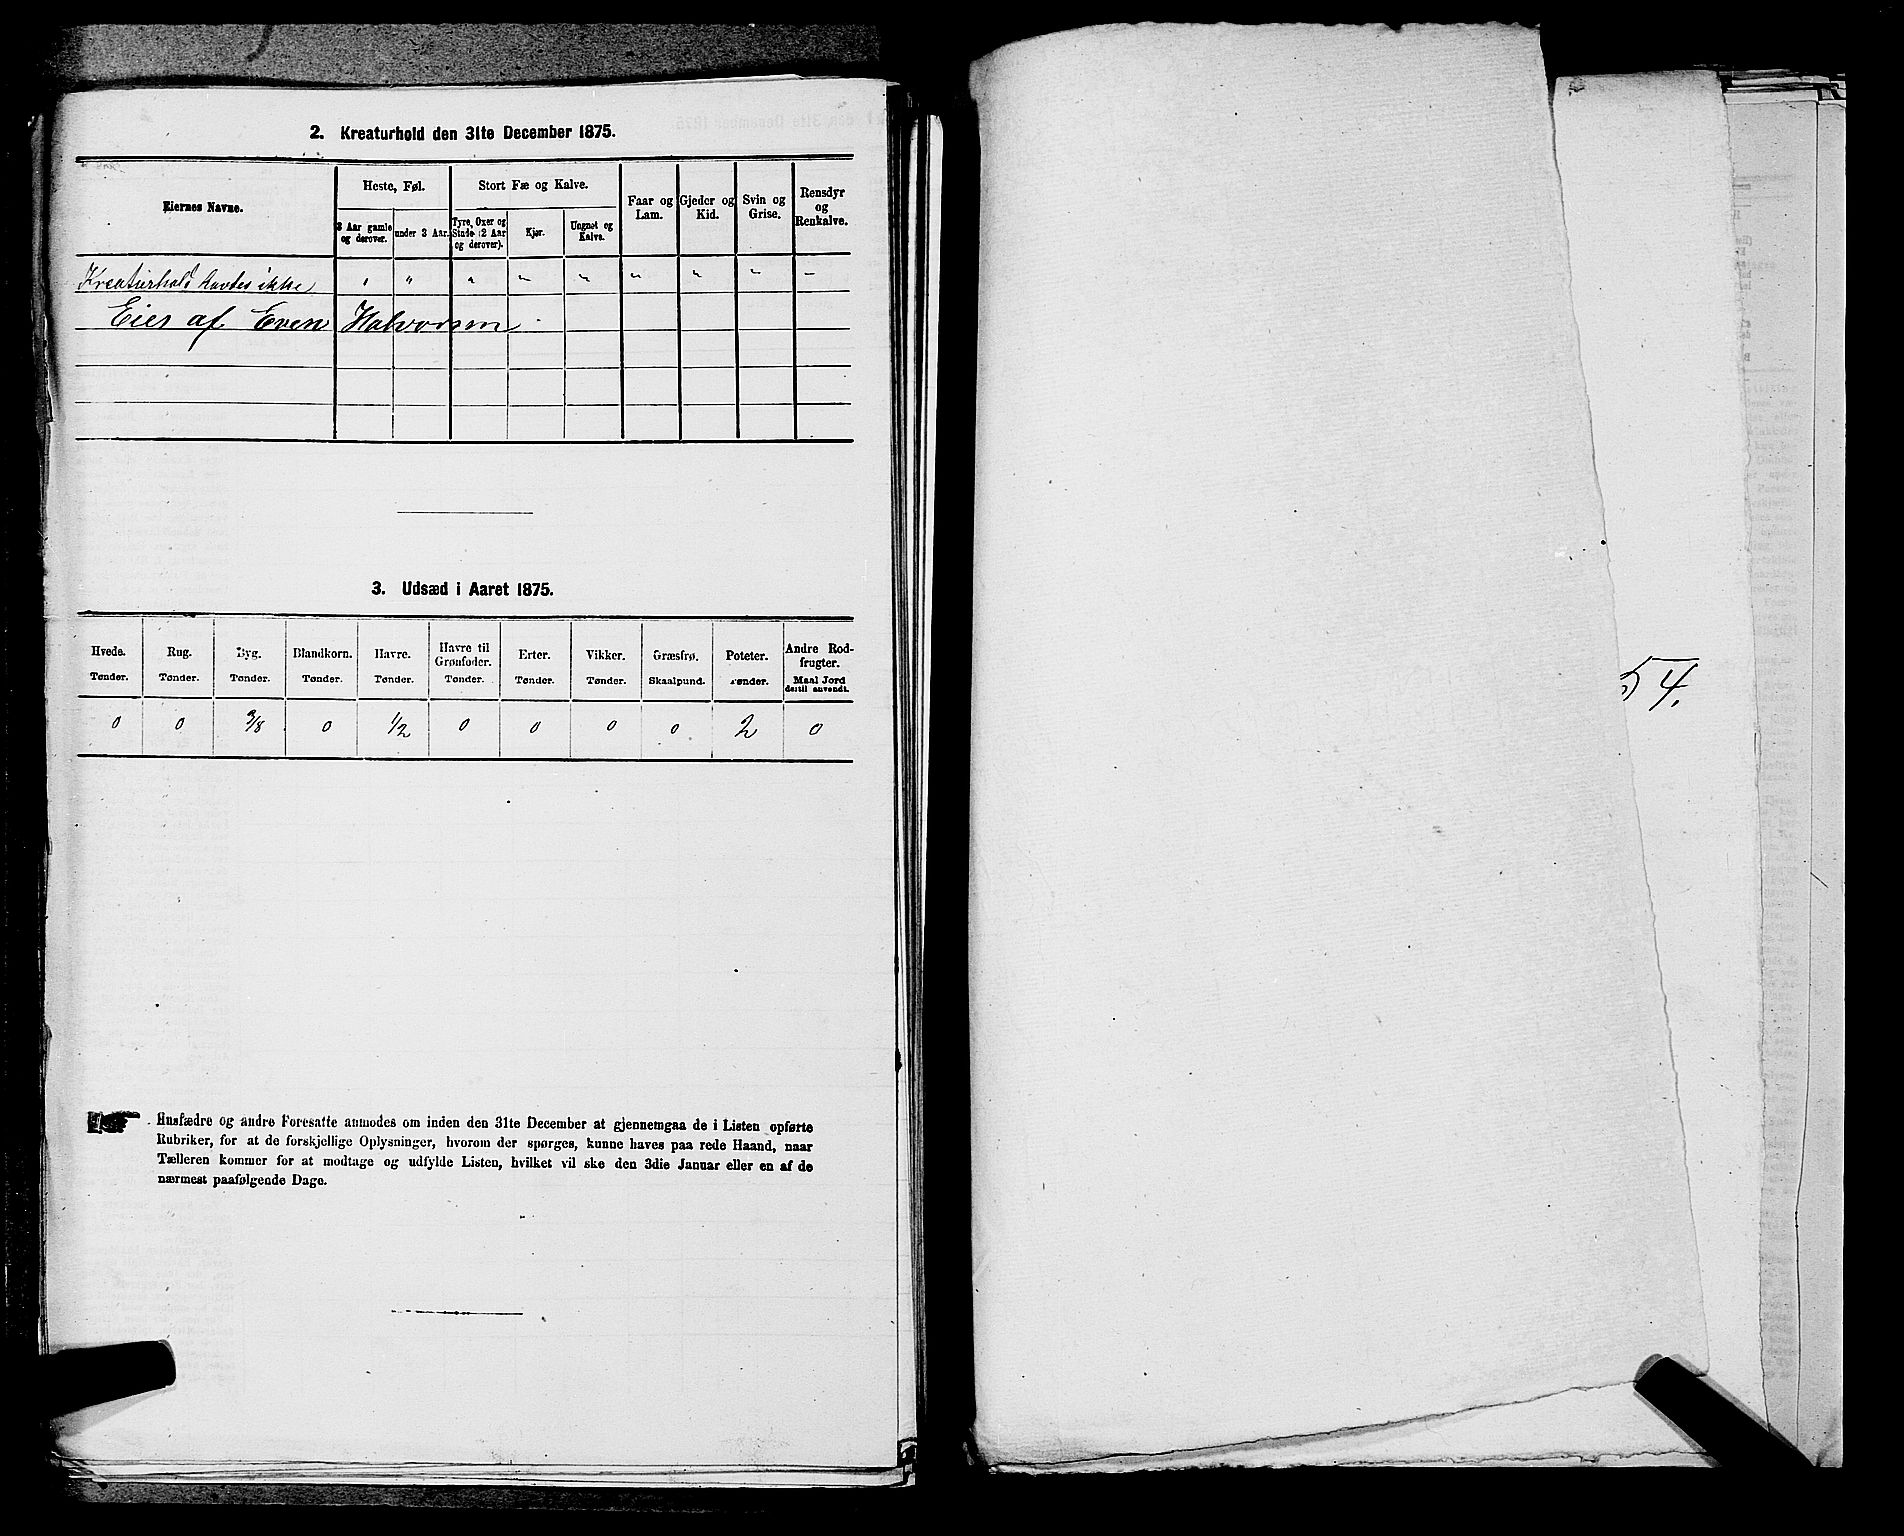 2. Kreaturhold den 31te December 1875.
Eiernes Navne. | Heste, Føl. | Stort Fæ og Kalve. | Faar og Lam. | Gjeder og Kid. | Svin og Grise. | Rensdyr og Renkalve.
3 Aar gamle og derover. | under 3 Aar. | Tyre, Oxer og Stude (2 Aar og derover). | Kjør. | Ungnøt og Kalve.
Kreaturhold havdes ikke " " " " " " " " –
Eies af Even Halvorsen
3. Udsæd i Aaret 1875.
Hvede. | Rug. | Byg. | Blandkorn. | Havre. | Havre til Grønfoder. | Erter. | Vikker. | Græsfrø. | Poteter. | Andre Rodfrugter.
Tønder. | Tønder. | Tønder. | Tønder. | Tønder. | Tønder. | Tønder. | Tønder. | Skaalpund. | Tønder. | Maal Jord dertil anvendt.
0 | 0 | 3/8 | 0 | 1/2 | 0 | 0 | 0 | 0 | 2 | 0
Husfædre og andre Foresatte anmodes om inden den 31te December at gjennemgaa de i Listen opførte
Rubriker, for at de forskjellige Oplysninger, hvorom der spørges, kunne haves paa rede Haand, naar
Tælleren kommer for at modtage og udfylde Listen, hvilket vil ske den 3die Januar eller en af de
nærmest paafølgende Dage.
54.